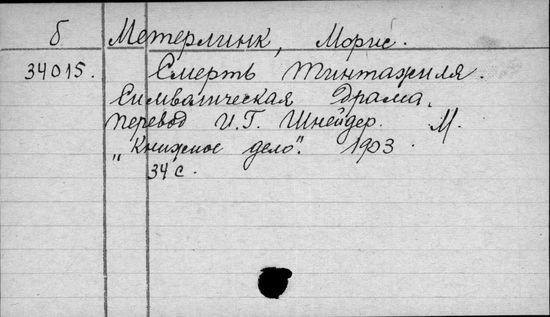 б Метерлинк, Морис.
34015. Смерть Тинтажиля.
Символическая драма.
Перевод И.Г. Шнейдер. М.
„Книжное дело". 1903.
34 с.